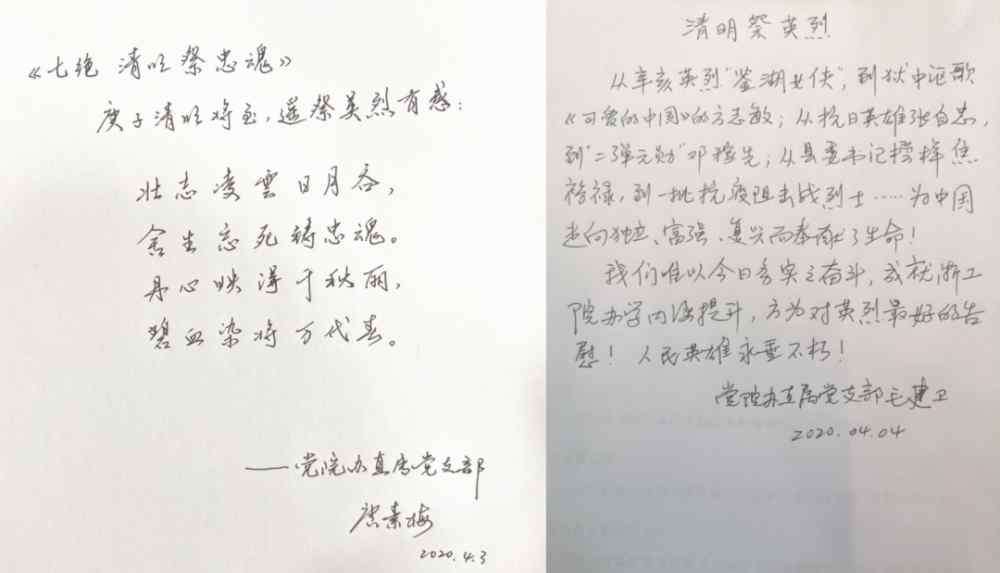 《七绝 清明祭忠魂》
庚子清明将至，遥祭英烈有感：
壮志凌雲日月吞，
舍生忘死铸忠魂。
丹心映得千秋丽，
碧血染将万代春。
——党院办直属党支部
唐素梅
2020.4.3
清明祭英烈
从辛亥英烈“鉴湖女侠”，到狱中讴歌
《可爱的中国》的方志敏；从抗日英雄张自忠，
到“二弹元勋”邓稼先；从县委书记榜样焦
裕禄，到一批抗疫阻击战烈士……为中国
走向独立、富强、复兴而奉献了生命！
我们唯以今日务实之奋斗，成就浙工
院办学内涵提升，方为对英烈最好的告
慰！人民英雄永垂不朽！
党院办直属党支部毛建卫
2020.04.04